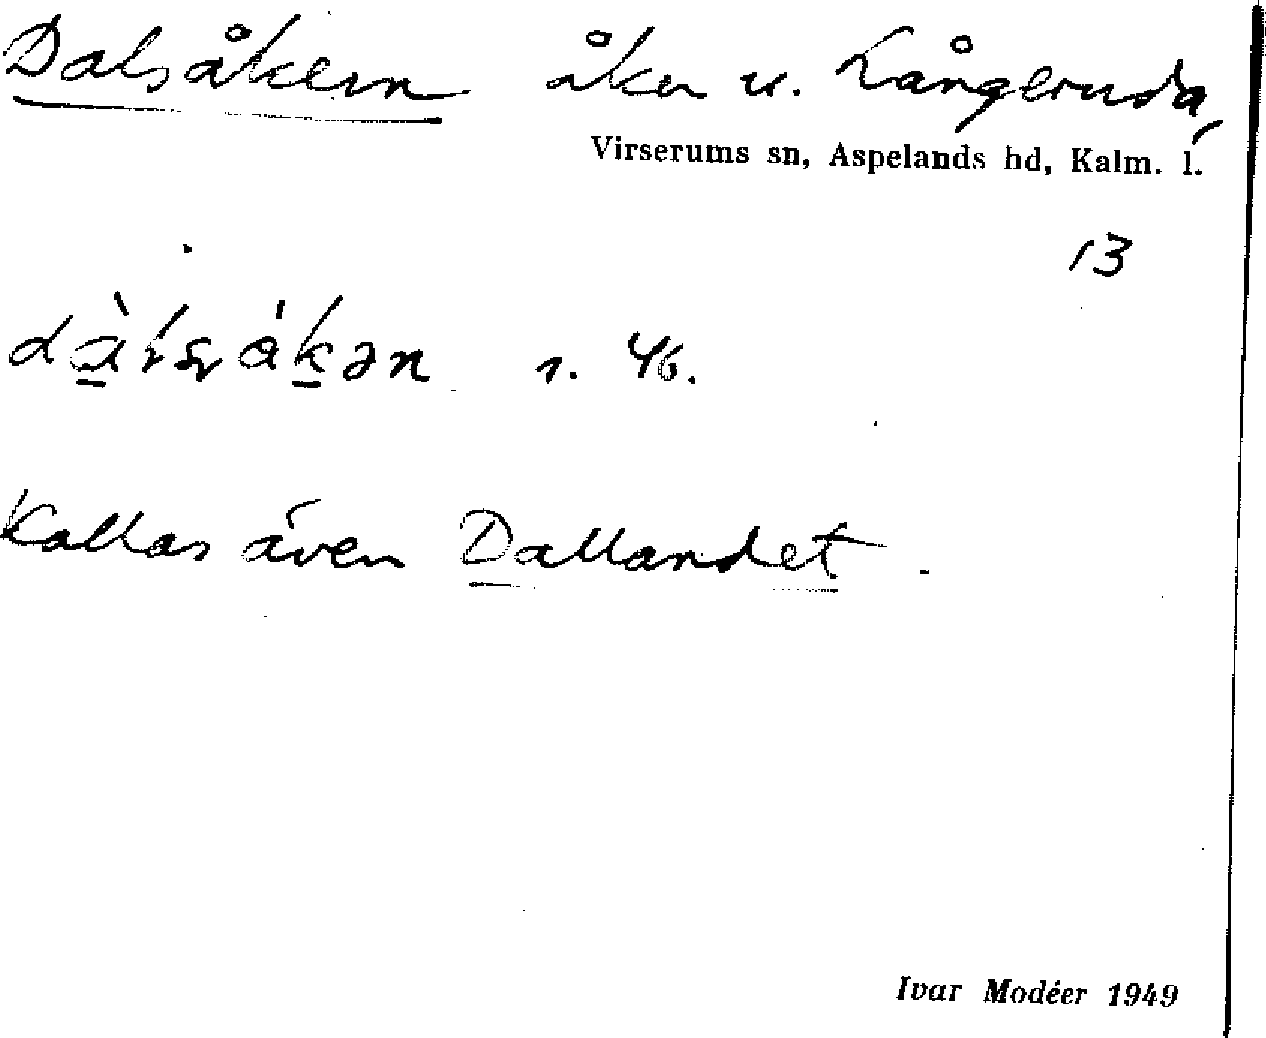 Dalsåkern åker u. Långeruda,
Virserums sn, Aspelands hd, Kalm. l.
13
r. 46.
Kallas även Dallandet.
Ivar Modéer 1949